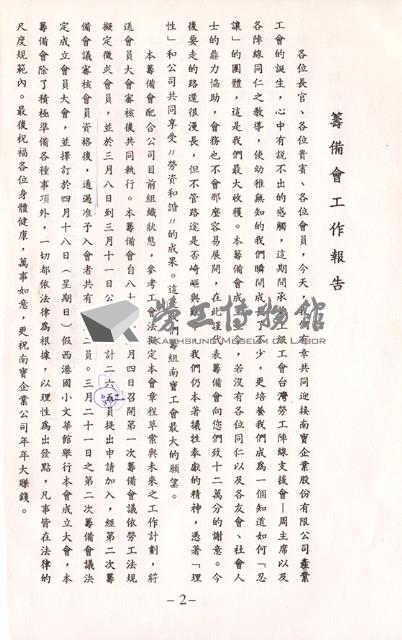 籌備會工作報告
各位長官、各位貴賓、各位會員,今天 有幸共同迎接南寶企業股份有限公司產業
工會的誕生,心中有說不出的感觸,這期間承 級工會台灣勞工陣線支援會—周主席以及
各陣線同仁之教導,使幼稚無知的我們瞬間成長了不少,更培養我們成為一個知道如何「忍
讓」的團體,這是我們最大收穫。本籌備會成 今 若沒有各位同仁以及各友會、社會人
士的鼎力協助,會務也不會那麼容易展開,在此謹代表籌備會向您們致十二萬分的謝意。今
後要走的路還很漫長,但不管路途是否崎嶇與 我們仍本著犧牲奉獻的精神,憑著「理
性」和公司共同享受"勞資和諧"的成果。這 們籌組南寶工會最大的願望。
本籌備會配合公司目前組織狀態,參考工會法擬定本會章程草案與未來之工作計劃,將
送會員大會審核後共同執行。本籌備會自八十 月四日召開第一次籌備會議依勞工法規
擬定徵求會員,並於三月八日到三月十一日公 計二六 員提出申請加入,經第二次籌
備會議審核會員資格後,通過准予入會者共有 二員。三月二十一日之第二次籌備會議決
定成立會員大會,並擇訂於四月十八日(星期日)假西港國小文華館舉行本會成立大會,本
籌備會除了積極準備各種事項外,一切都依法律為根據,以理性為出發點,凡事皆在法律的
尺度規範內。最後祝福各位身體健康,萬事如意,更祝南寶企業公司年年大賺錢。
勞工博物館
KAOHSIUNG MUSEUM OF LABOR
-2-